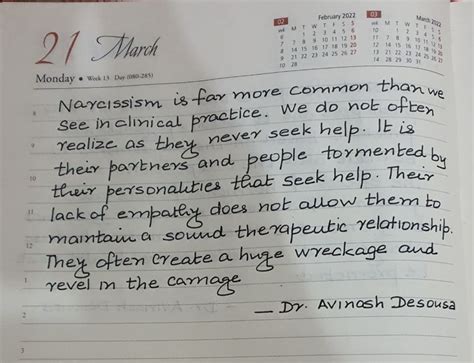 21 March
Monday • Week 13 Day (080-285)
February 2022
March 2022
Narcissism is far more common than we
see in clinical practice. We do not often
realize as they never seek help. It is
their partners and people tormented by
their personalities that seek help. Their
lack of empathy does not allow them to
maintain a sound therapeutic relationship.
They often create a huge wreckage and
revel in the carnage
– Dr. Avinash Desousa